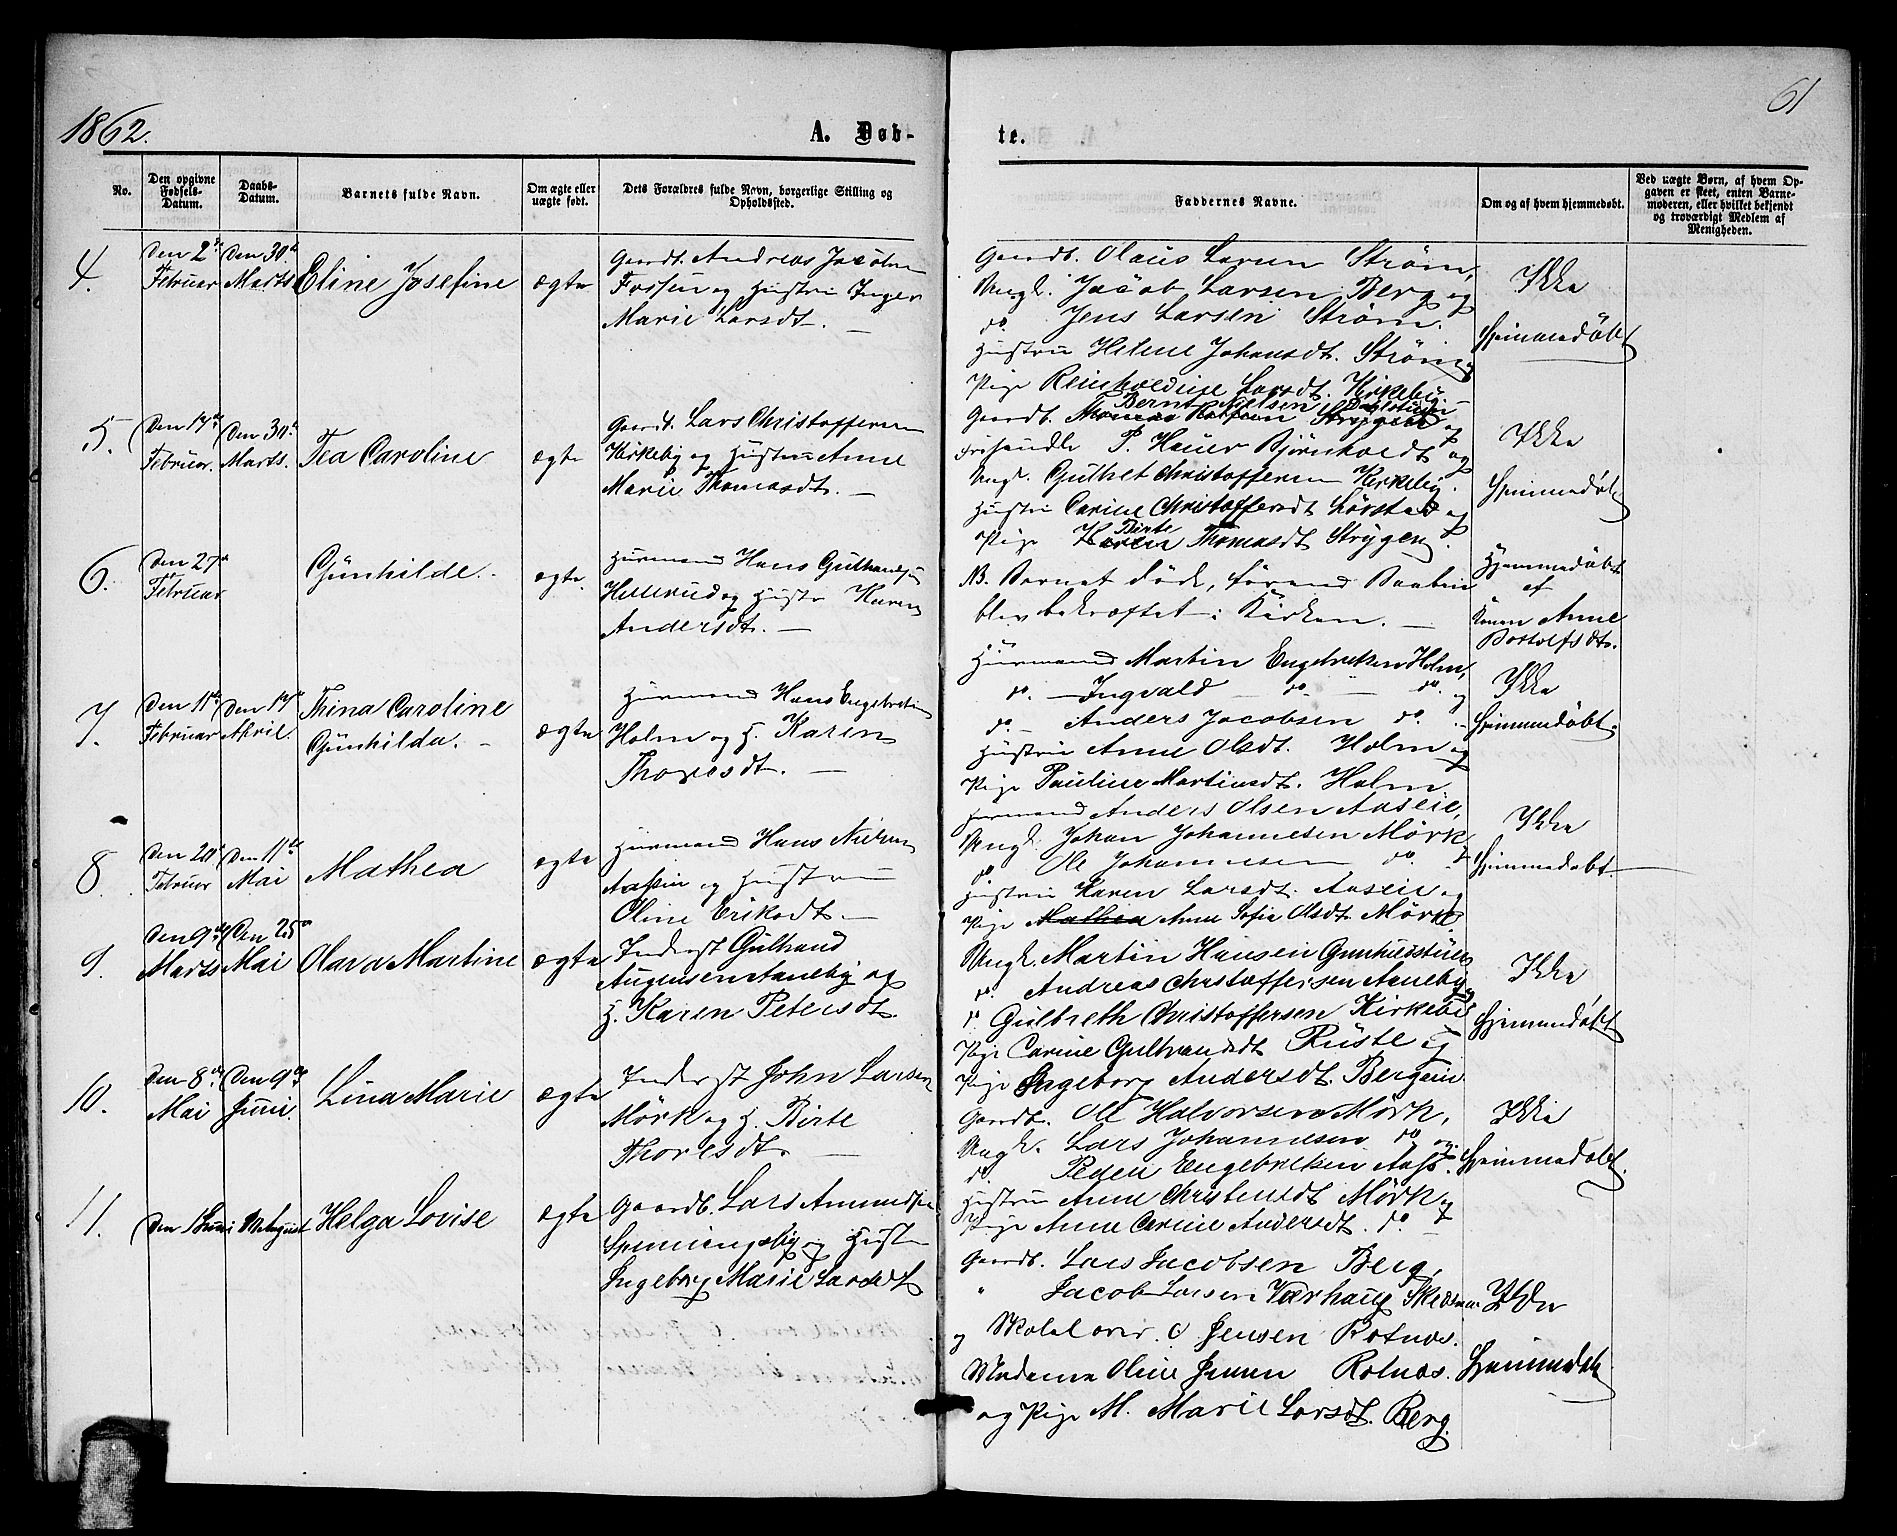 1862.
A. Døb-
te.
61
No.
Den opgivne Fødsels-Datum.
Daabs-Datum.
Barnets fulde Navn.
Om ægte eller uægte født.
Dets Forældres fulde Navn, borgerlige Stilling og Opholdssted.
Faddernes Navne.
Om og af hvem hjemmedøbt.
Ved uægte Børn, af hvem Opgaven er skeet, enten Barnemoderen, eller hvilket bekjendt og troværdigt Medlem af Menigheden.
4.
Den 2den
Februar
Den 30te
Marts
Eline Josefine
ægte
Gaardb. Andreas Jacobsen
Fossen og Hustru Inger
Marie Larsdt. —
Gaardb. Olaus Larsen Strøm,
Ungk. Jacob Larsen Berg og
do. Jens Larsen Strøm.
Hustru Helene Johansdt. Strøm og
Pige Reinholdine Larsdt. Kirkeby. —
Ikke
Hjemmedøbt
5.
Den 14de
Februar.
Den 30te
Marts.
Tea Caroline
ægte
Gaardb. Lars Christoffersen
Kirkeby og Hustru Anne
Marie Thomasdt. —
Gaardb. Bernt Nielsen
P. Hauer Bjørnholdt og
Ungk. Gulbret Christoffersen Kirkeby.
Hustru Carine Christoffersdt Lørstad og
Pige Birte Thomasdt Strygen.
Ikke
Hjemmedøbt
6.
Den 27de
Februar
Gunhilde. -
ægte.
Huusmand Hans Gulbrandsen
Hellerud og Hustr Karen
Andersdt. —
NB. Barnet døde, førend Daaben
blev bekræftet i Kirken. —
Hjemmedøbt
af
Konen Anne
Bortolfsdtr.
7.
Den 11te
Februar
Den 14de
April.
Thina Caroline
Gunhilda. -
ægte
Huusmand Hans Engebretsen
Holm og H. Karen
Thoresdt. —
Huusmand Martin Engebretsen Holm,
do. — Ingvald — do. — do. og
do. — Anders Jacobsen do. -
Hustru Anne Olsdt. Holm og
Pige Pauline Martinsdt. Holm
Ikke
Hjemmedøbt.
8.
Den 20de
Februar
Den 11te
Mai
Mathea
ægte
Huusmand Hans Nielsen
Aaseie og Hustru
Oline Eriksdt. —
Huusmand Anders Olsen Aaseie,
Ungk. Johan Johannesen Mørk
do Ole Johannesen do.
Hustru Karen Larsdt. Aaseie og
Pige Mathea Anne Sofie Olsdt. Mørk.
Ikke
Hjemmedøbt.
9.
Den 9de
Marts
Den 25de
Mai
Olava Martine
ægte
Inderst Gulbrand
Augensen Aaneby og
H. Karen Petersdt.
Ungk. Martin Hansen
do. Andreas Christoffersen Aaneby
do Gulbreth Christoffersen Kirkeby
Pige Carine Gulbrandsdt Rüste og
Pige Ingeborg Andersdt. Bergeie.
Ikke
Hjemmedøbt
10.
Den 8de
Mai
Den 9de
Juni.
Lina Marie
ægte
Inderst John Larsen
Mørk og H. Birte
Thoresdt. —
Gaardb. Ole Halvorsen Mørk,
Ungk. Lars Johannesen do og
do. Peder Engebretsen Aas.
Hustru Anne Christensdt Mørk og
Pige Anne Carine Andersdt. do. —
Ikke
Hjemmedøbt.
11.
Den 1 Juni
August
Helga Lovise
ægte
Gaardb. Lars Amundsen
Spenningsby og Hustr
Ingeborg Marie Larsdt
Gaardb. Lars Jacobsen Berg,
" Jacob Larsen Værhaug Skedsmo
og Jensen Rotnæs.
Madame Oline Jensen Rotnæs.
og Pige M. Marie Larsdt. Berg.
Ikke
Hjemmedøbt